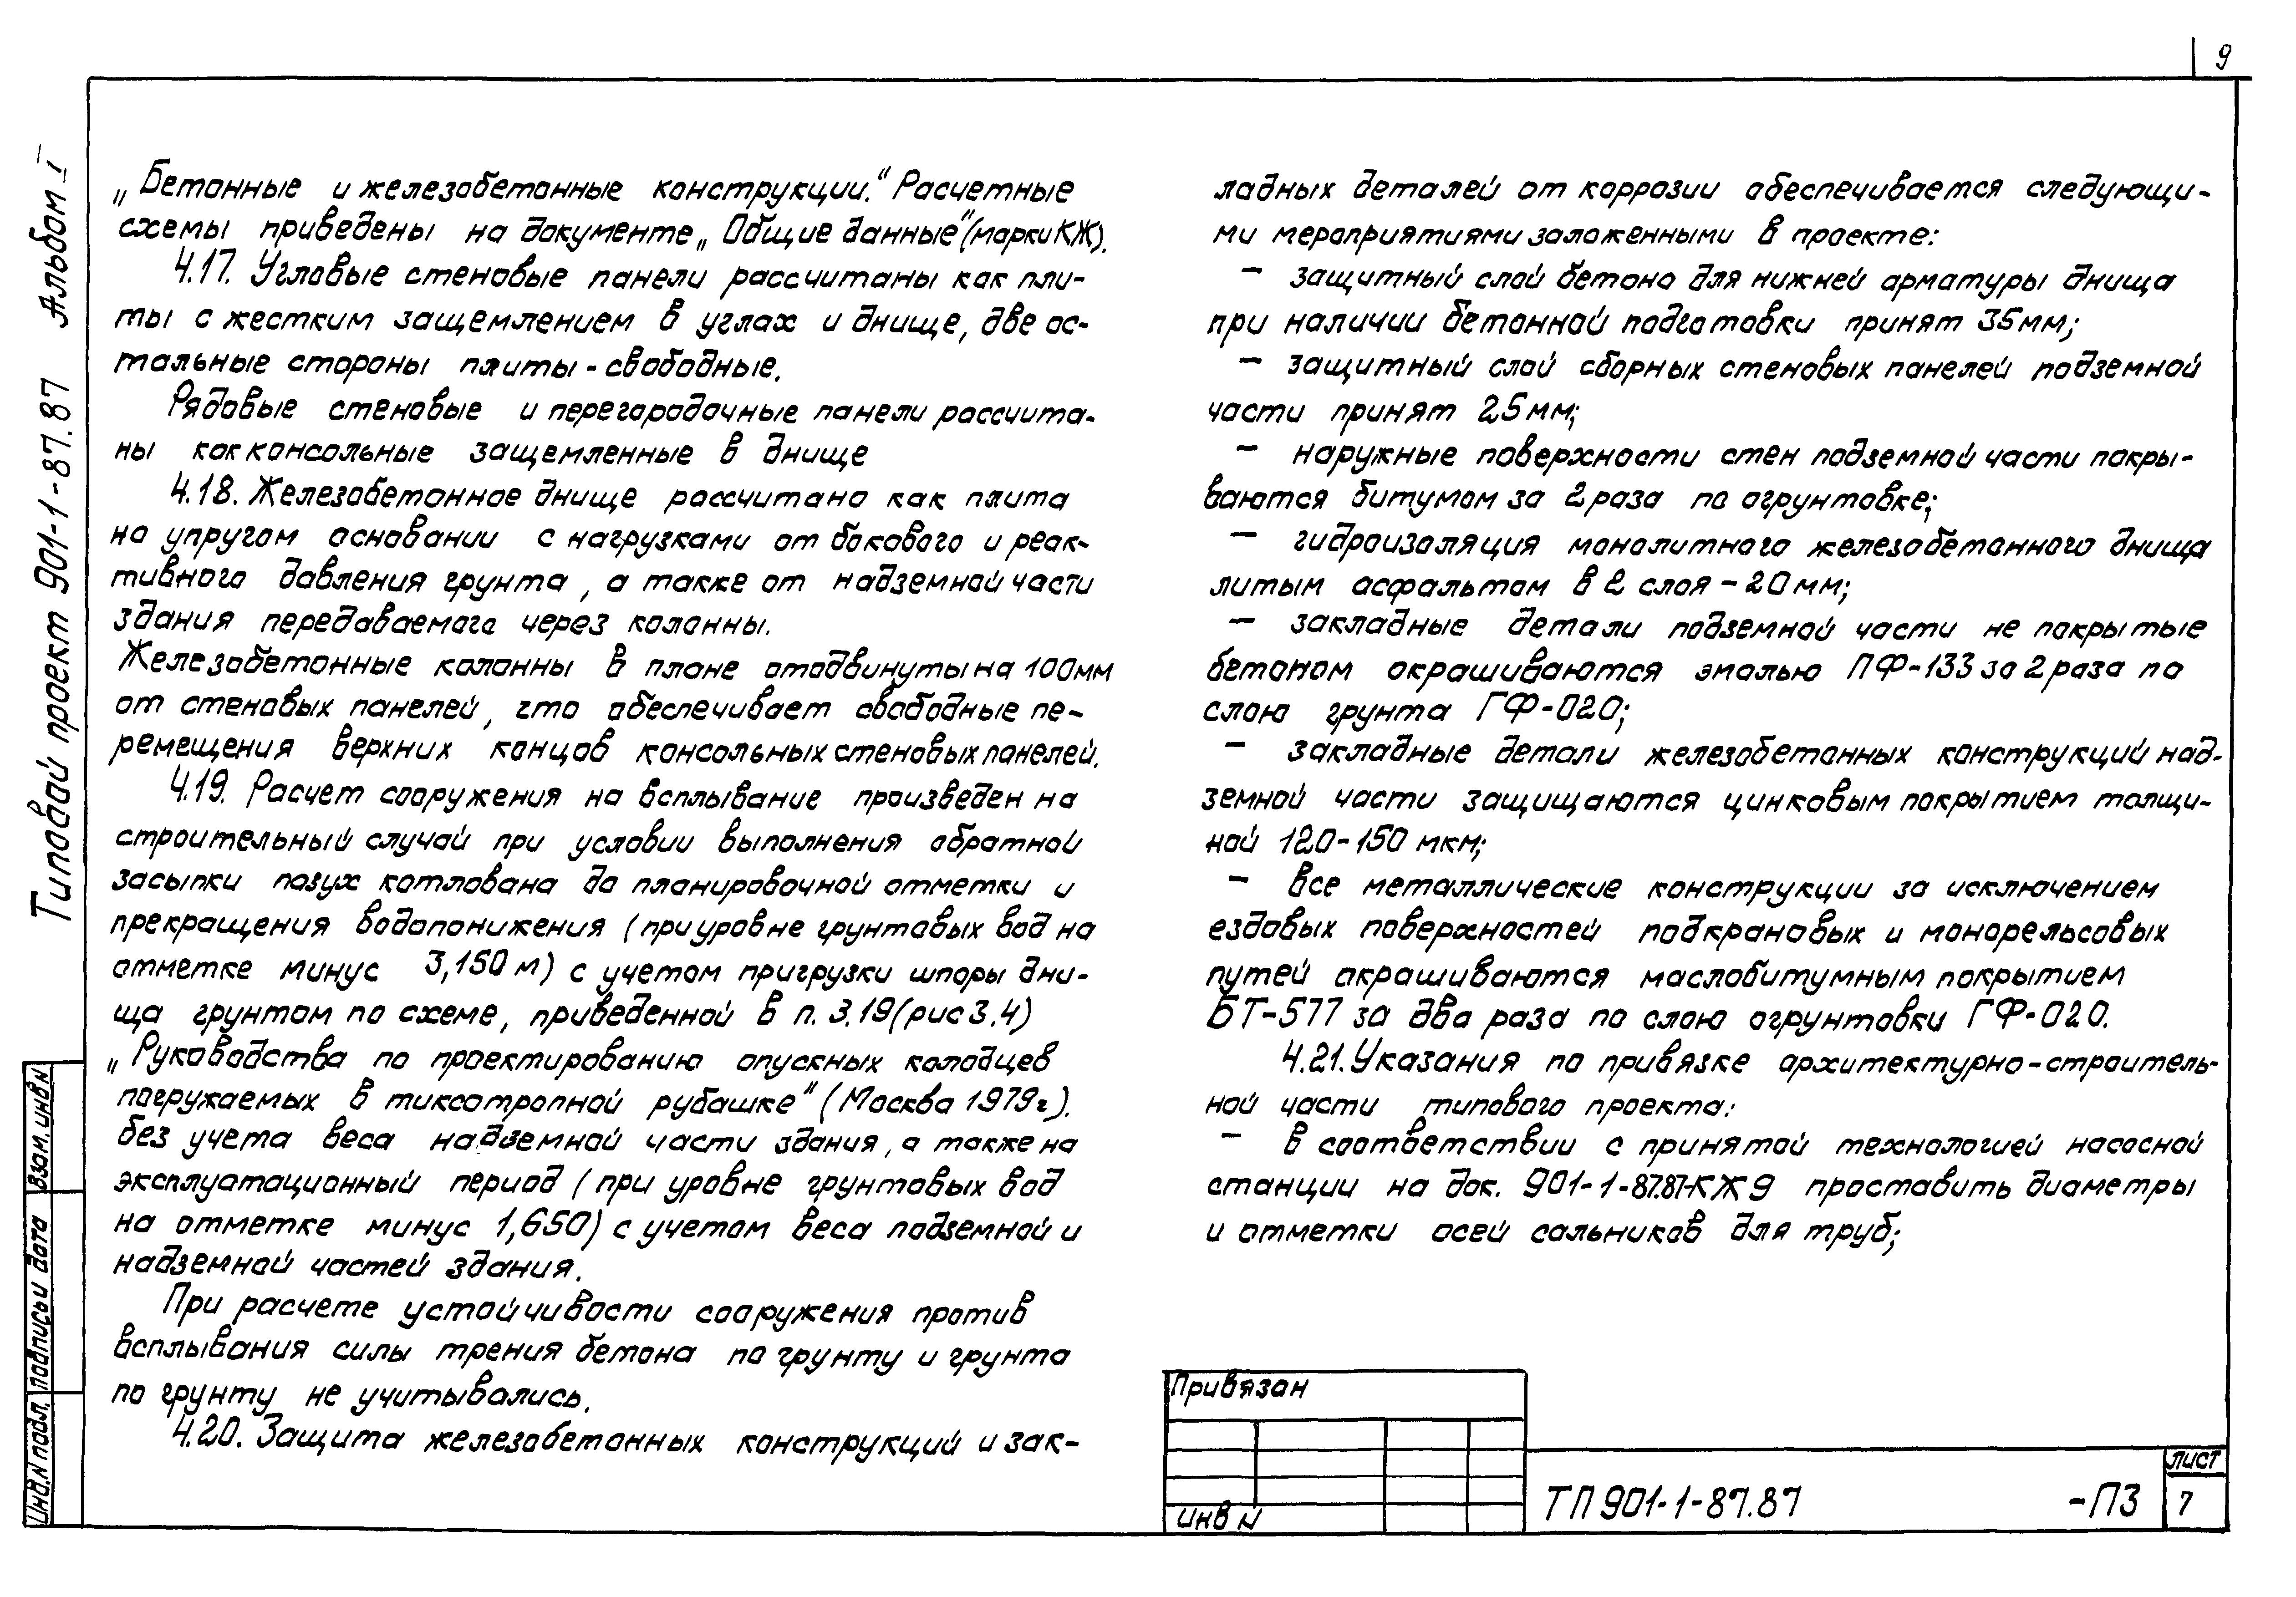 9
Типовой проект 901-1-87.87 Альбом I
„Бетонные и железобетонные конструкции.“ Расчетные
схемы приведены на документе „Общие данные“ (марки КЖ).
4.17. Угловые стеновые панели рассчитаны как пли-
ты с жестким защемлением в углах и днище, две ос-
тальные стороны плиты - свободные.
Рядовые стеновые и перегородочные панели рассчита-
ны как консольные защемленные в днище
4.18. Железобетонное днище рассчитано как плита
на упругом основании с нагрузками от бокового и реак-
тивного давления грунта, а также от надземной части
здания передаваемого через колонны.
Железобетонные колонны в плане отодвинуты на 100мм
от стеновых панелей, что обеспечивает свободные пе-
ремещения верхних концов консольных стеновых панелей.
4.19. Расчет сооружения на всплывание произведен на
строительный случай при условии выполнения обратной
засыпки пазух котлована до планировочной отметки и
прекращения водопонижения (при уровне грунтовых вод на
отметке минус 3,150 м) с учетом пригрузки шпоры дни-
ща грунтом по схеме, приведенной в п. 3.19 (рис 3.4)
„Руководства по проектированию опускных колодцев
погружаемых в тиксотропной рубашке“ (Москва 1979г).
без учета веса надземной части здания, а также на
эксплуатационный период (при уровне грунтовых вод
на отметке минус 1,650) с учетом веса подземной и
надземной частей здания.
При расчете устойчивости сооружения против
всплывания силы трения бетона по грунту и грунта
по грунту не учитывались.
4.20. Защита железобетонных конструкций и зак-
ладных деталей от коррозии обеспечивается следующи-
ми мероприятиями заложенными в проекте:
— защитный слой бетона для нижней арматуры днища
при наличии бетонной подготовки принят 35мм;
— защитный слой сборных стеновых панелей подземной
части принят 25мм;
— наружные поверхности стен подземной части покры-
ваются битумом за 2 раза по огрунтовке;
— гидроизоляция монолитного железобетонного днища
литым асфальтом в 2 слоя - 20 мм;
— закладные детали подземной части не покрытые
бетоном окрашиваются эмалью ПФ-133 за 2 раза по
слою грунта ГФ-020;
— закладные детали железобетонных конструкций над-
земной части защищаются цинковым покрытием толщи-
ной 120-150 мкм;
— все металлические конструкции за исключением
ездовых поверхностей подкрановых и монорельсовых
путей окрашиваются маслобитумным покрытием
БТ-577 за два раза по слою огрунтовки ГФ-020.
4.21. Указания по привязке архитектурно-строитель-
ной части типового проекта:
— в соответствии с принятой технологией насосной
станции на док. 901-1-87.87-КЖ9 проставить диаметры
и отметки осей сальников для труб;
Инв.N подл. Подпись и дата Взам. инв N
Привязан
Инв N
ТП 901-1-87.87 -ПЗ
лист
7